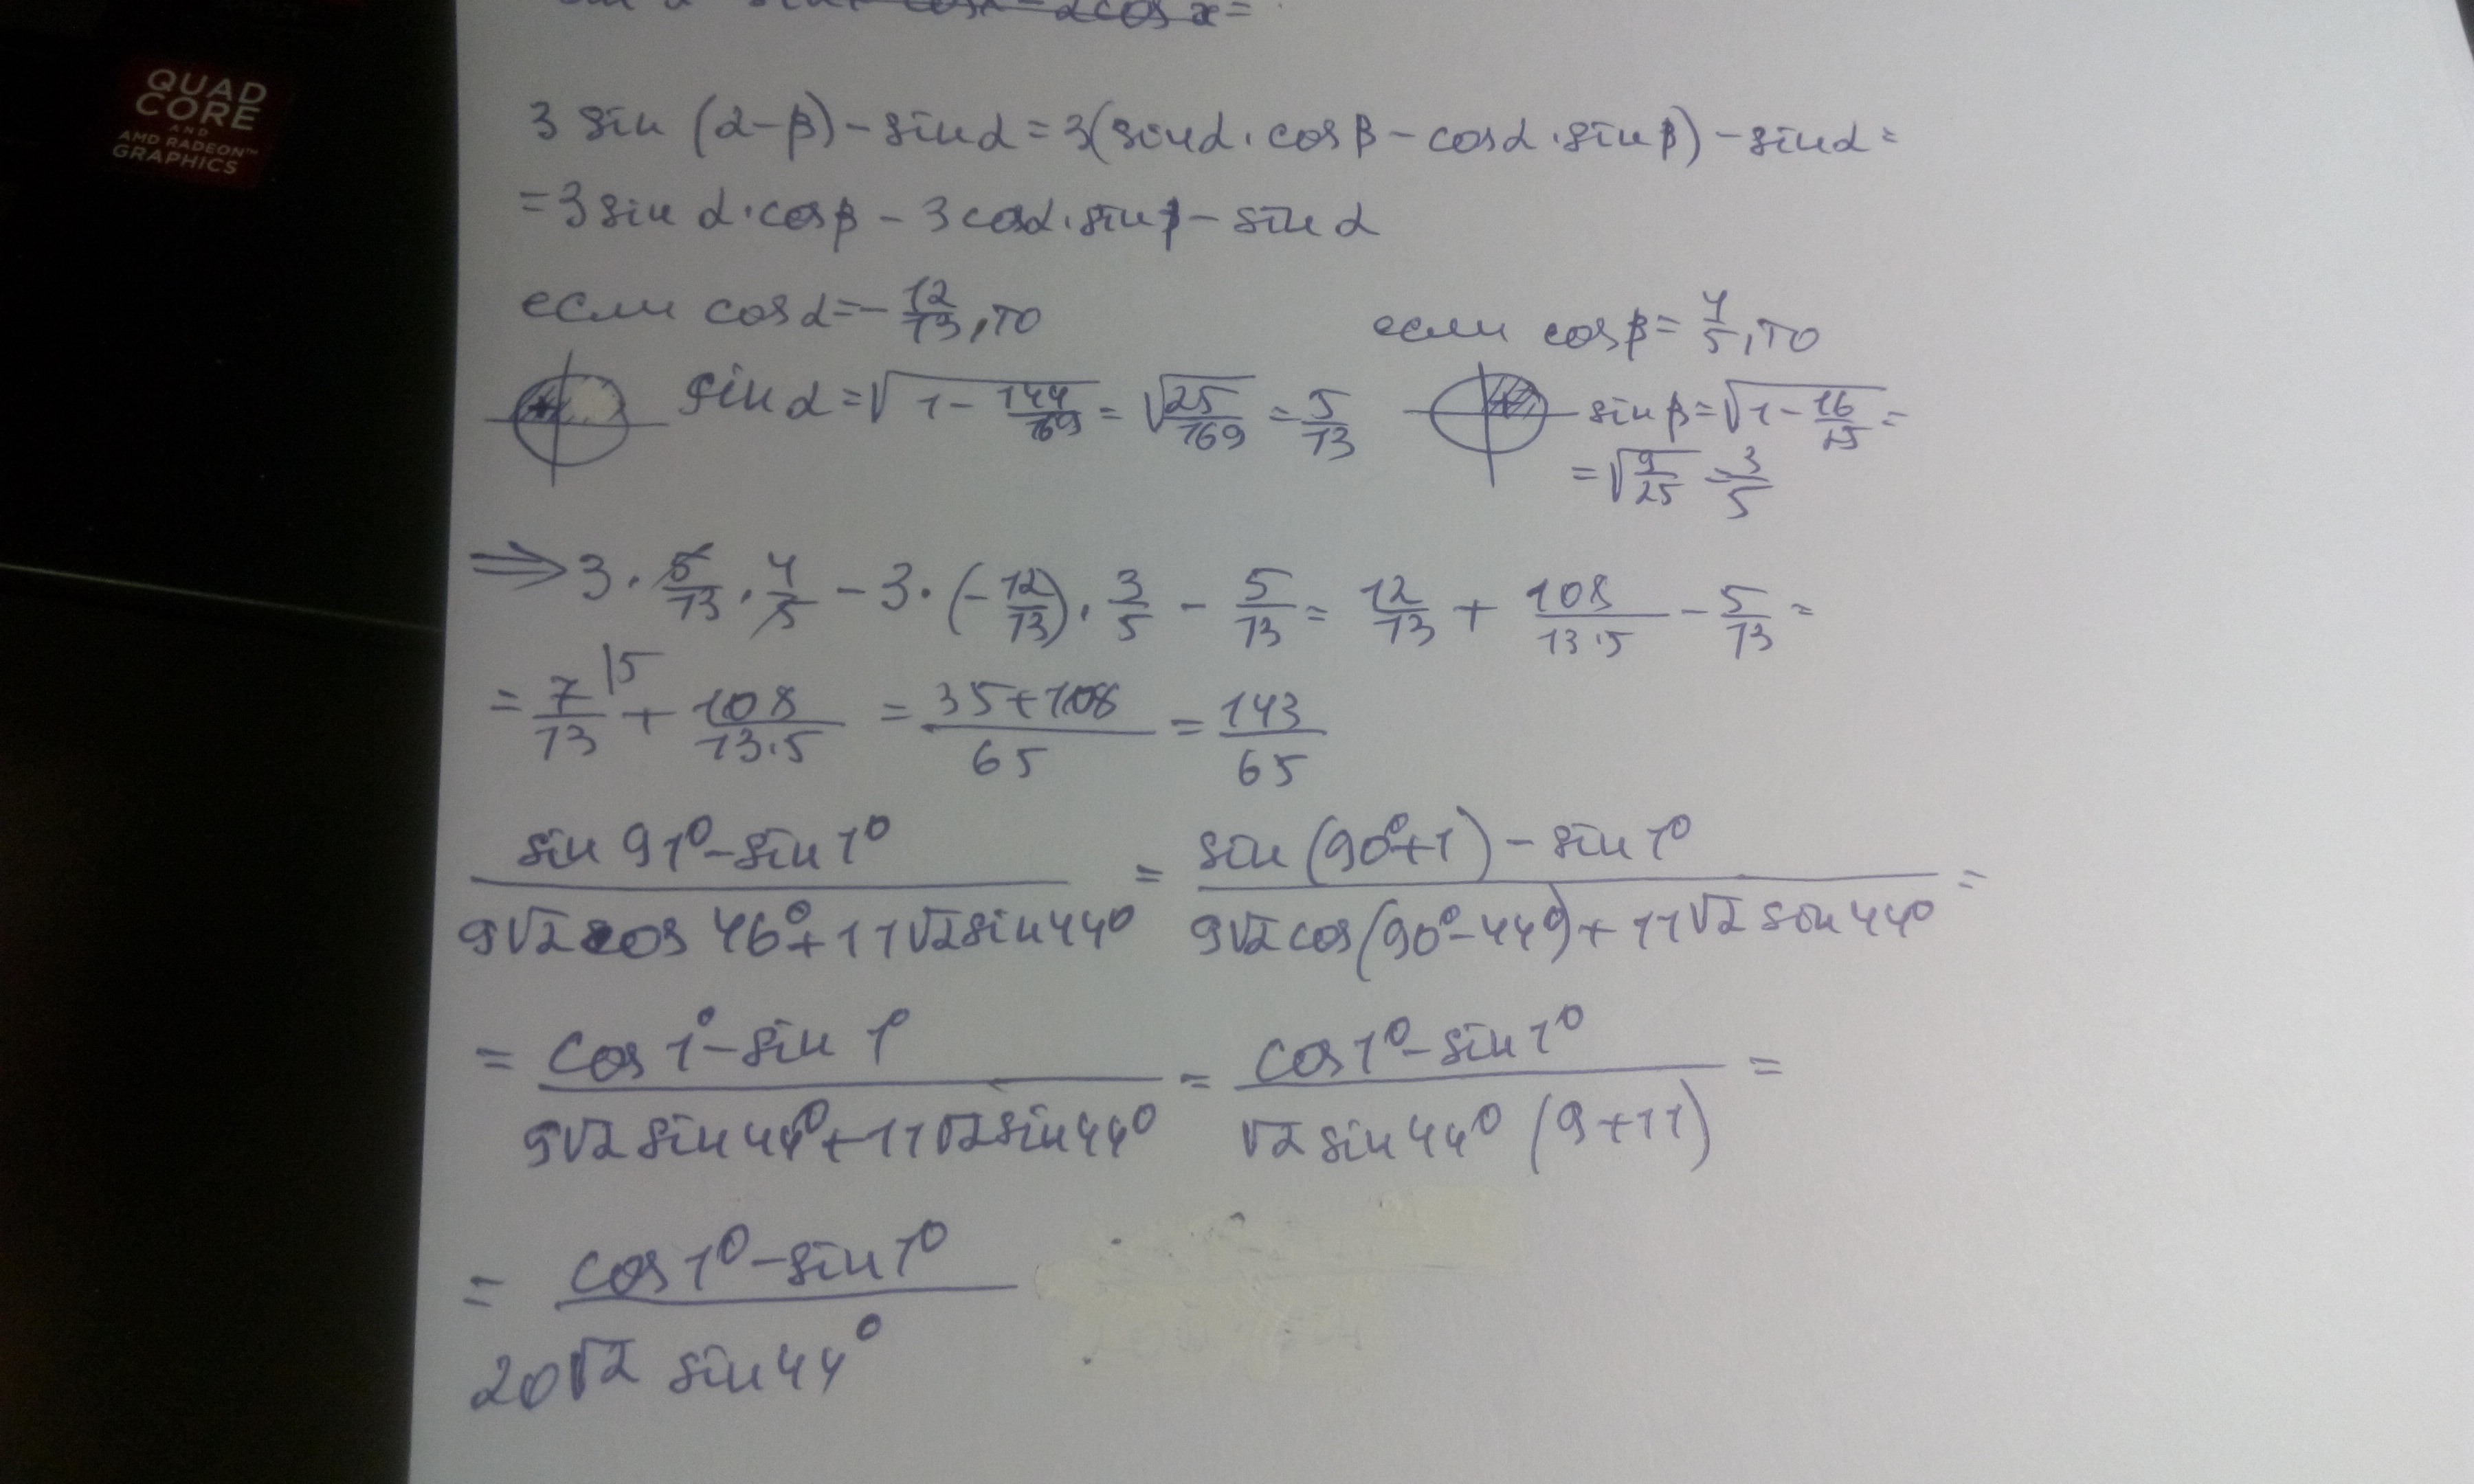 QUAD
CORE
AND
AMD RADEON™
GRAPHICS
cos x =
3 sin (α-β) - sin α = 3(sin α · cos β - cos α · sin β) - sin α =
= 3 sin α · cos β - 3 cos α · sin β - sin α
если cos α = - 12/13, то
sin α = √(1 - 144/169) = √(25/169) = 5/13
если cos β = 4/5, то
sin β = √(1 - 16/25) =
= √(9/25) = 3/5
⇒ 3 · 5/13 · 4/5 - 3 · (-12/13) · 3/5 - 5/13 = 12/13 + 108/(13·5) - 5/13 =
= 7/13 |5 + 108/(13·5) = (35+108)/65 = 143/65
(sin 91° - sin 1°)/(9√2 cos 46° + 11√2 sin 44°) = (sin (90°+1) - sin 1°)/(9√2 cos(90°-44°) + 11√2 sin 44°) =
= (cos 1° - sin 1°)/(9√2 sin 44° + 11√2 sin 44°) = (cos 1° - sin 1°)/(√2 sin 44° (9+11)) =
= (cos 1° - sin 1°)/(20√2 sin 44°)